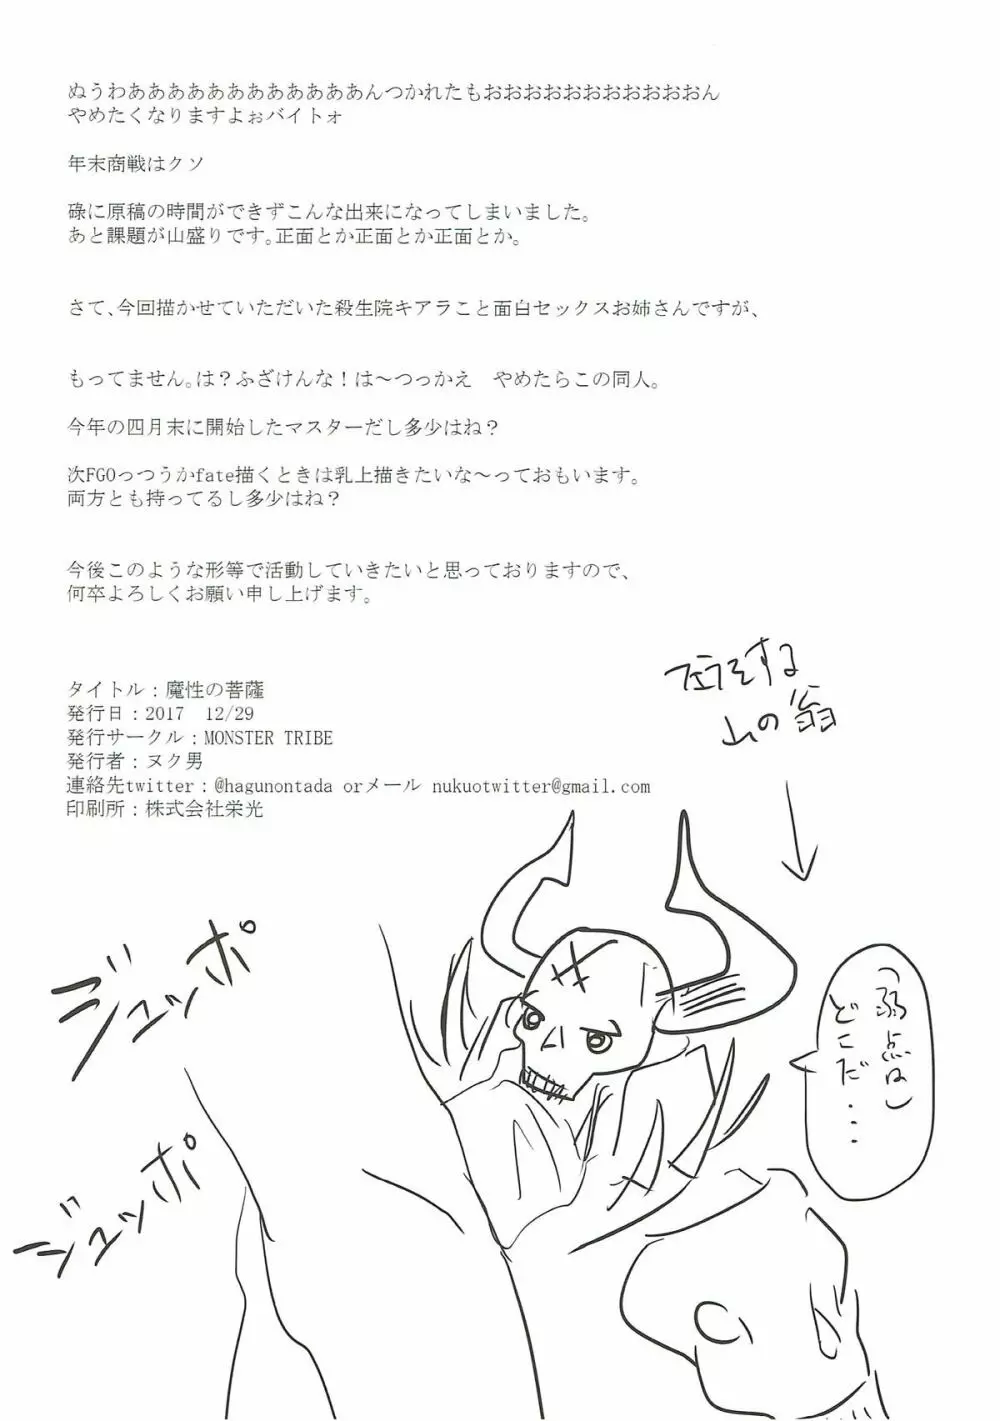 ぬうわあああああああああああああんつかれたもおおおおおおおおおおおおん
やめたくなりますよぉバイトォ
年末商戦はクソ
碌に原稿の時間ができずこんな出来になってしまいました。
あと課題が山盛りです。正面とか正面とか正面とか。
さて、今回描かせていただいた殺生院キアラこと面白セックスお姉さんですが、
もってません。は？ふざけんな！は～つっかえ　やめたらこの同人。
今年の四月末に開始したマスターだし多少はね？
次FGOっつうかfate描くときは乳上描きたいな～っておもいます。
両方とも持ってるし多少はね？
今後このような形等で活動していきたいと思っておりますので、
何卒よろしくお願い申し上げます。
タイトル：魔性の菩薩
発行日：2017　12/29
発行サークル：MONSTER TRIBE
発行者：ヌク男
連絡先twitter：@hagunontada orメール nukuotwitter@gmail.com
印刷所：株式会社栄光
フェラをする
山の翁
ジュッポ
ジュッポ
(弱点は
どこだ・・・